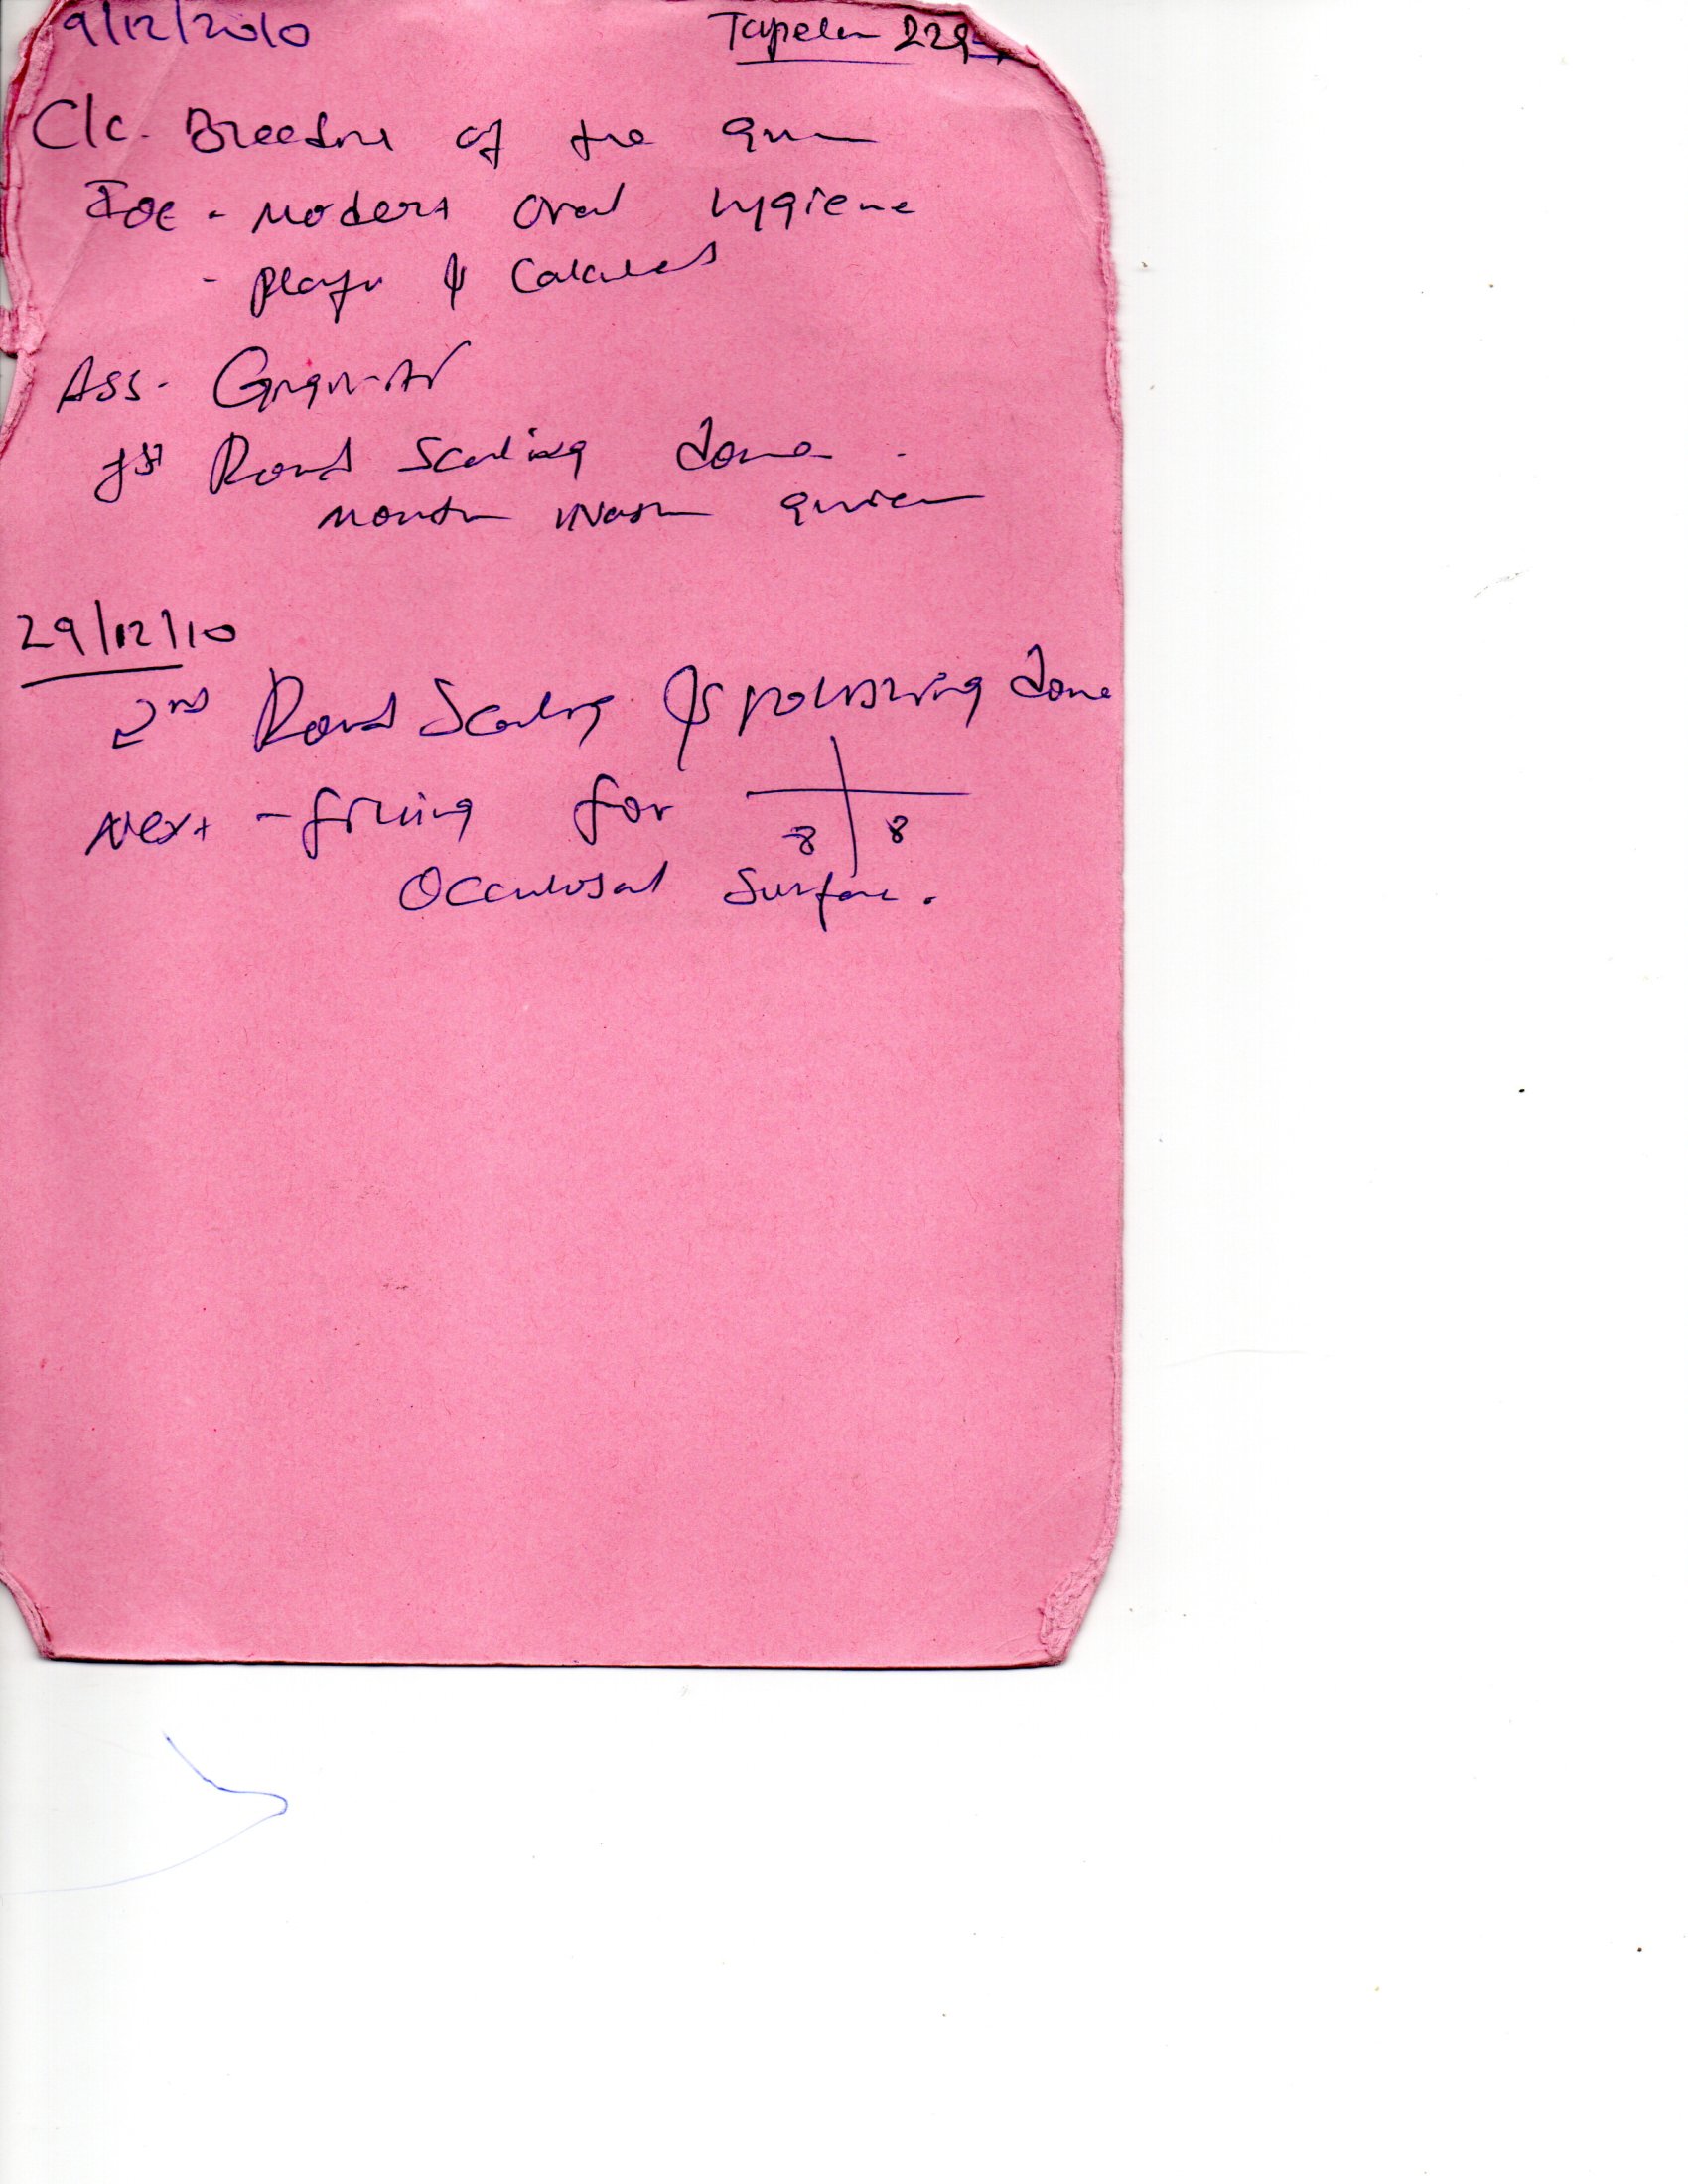 9/12/2010
C/c. Bleeding of the gum
IOE - Modert Oral hygiene
- Plaque & Calculus
Ass. Gingivitis
1st Round Scaling done.
Mouth Wash given
29/12/10
2nd Round Scaling & polishing done
Next - filling for
8 | 8
Occulusal Surface.